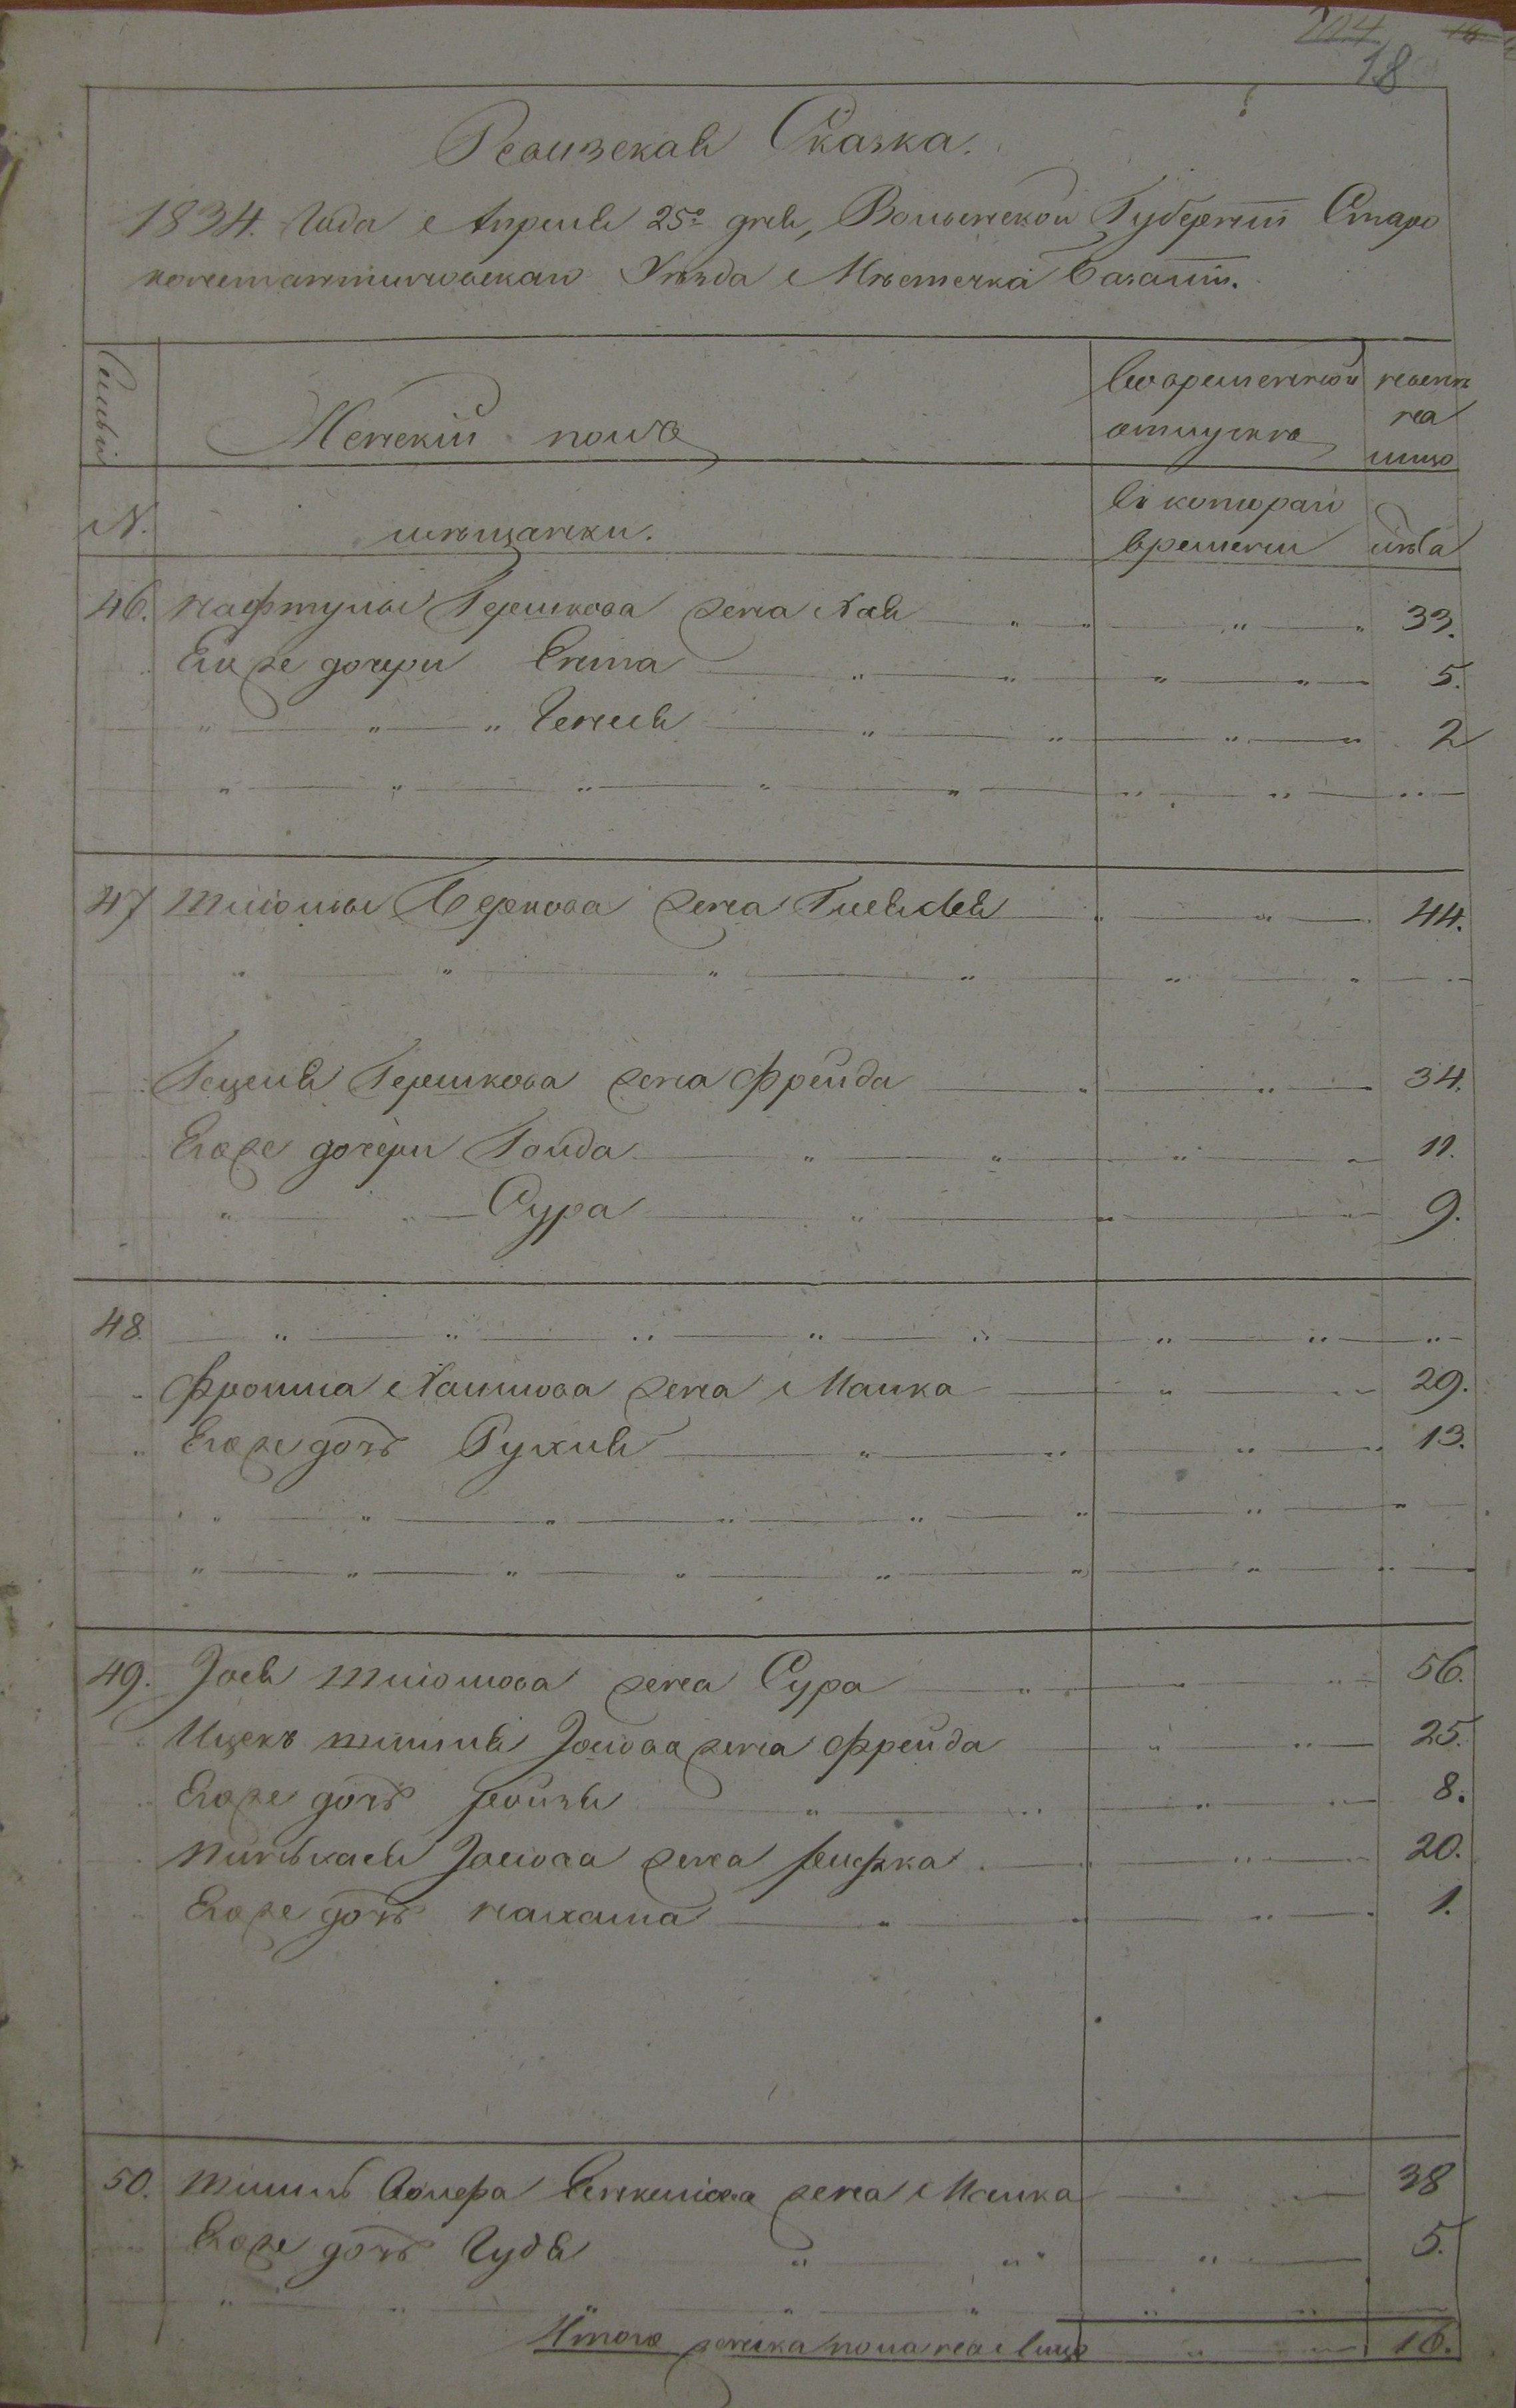 204
18
Ревизская Сказка.
1834. Года Апреля 25го дня, Волынской Губернiи Старо
константиновскаго Уѣзда Мѣстечка Базалiи.
Семьи Женскiй полъ во временной отлучкѣ нынѣ на лицо
№. мѣщанки. Съ котораго времени лѣта
46. Нафтулы Гершкова жена Хая 33.
Его же дочери Ента 5.
" " " Ченся 2
47 Шломы Беркова жена 44.
Гецеля Гершкова жена Фрейда 34.
Его же дочери Голда 11.
" Сура 9.
48.
Фроима Хаимова жена Малка 29.
Его же дочь Рухля 13.
49. Iося Шломова жена Сура 56.
Ицекъ Iосева жена Фрейда 25.
Его же дочь Рейзя 8.
Пинхася Iосева жена Рифка 20.
Его же дочь Нахама 1.
50. жена Малка 38
Его же дочь Гудя 5.
Итого женска пола на лицо 16.